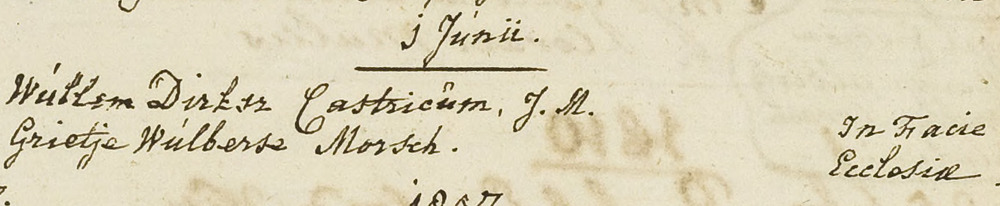 j Junii.
Willem Dirksz Castricum, J. M.
Grietje Wulberse Morsch.
In Facie
Ecclesiæ
1807